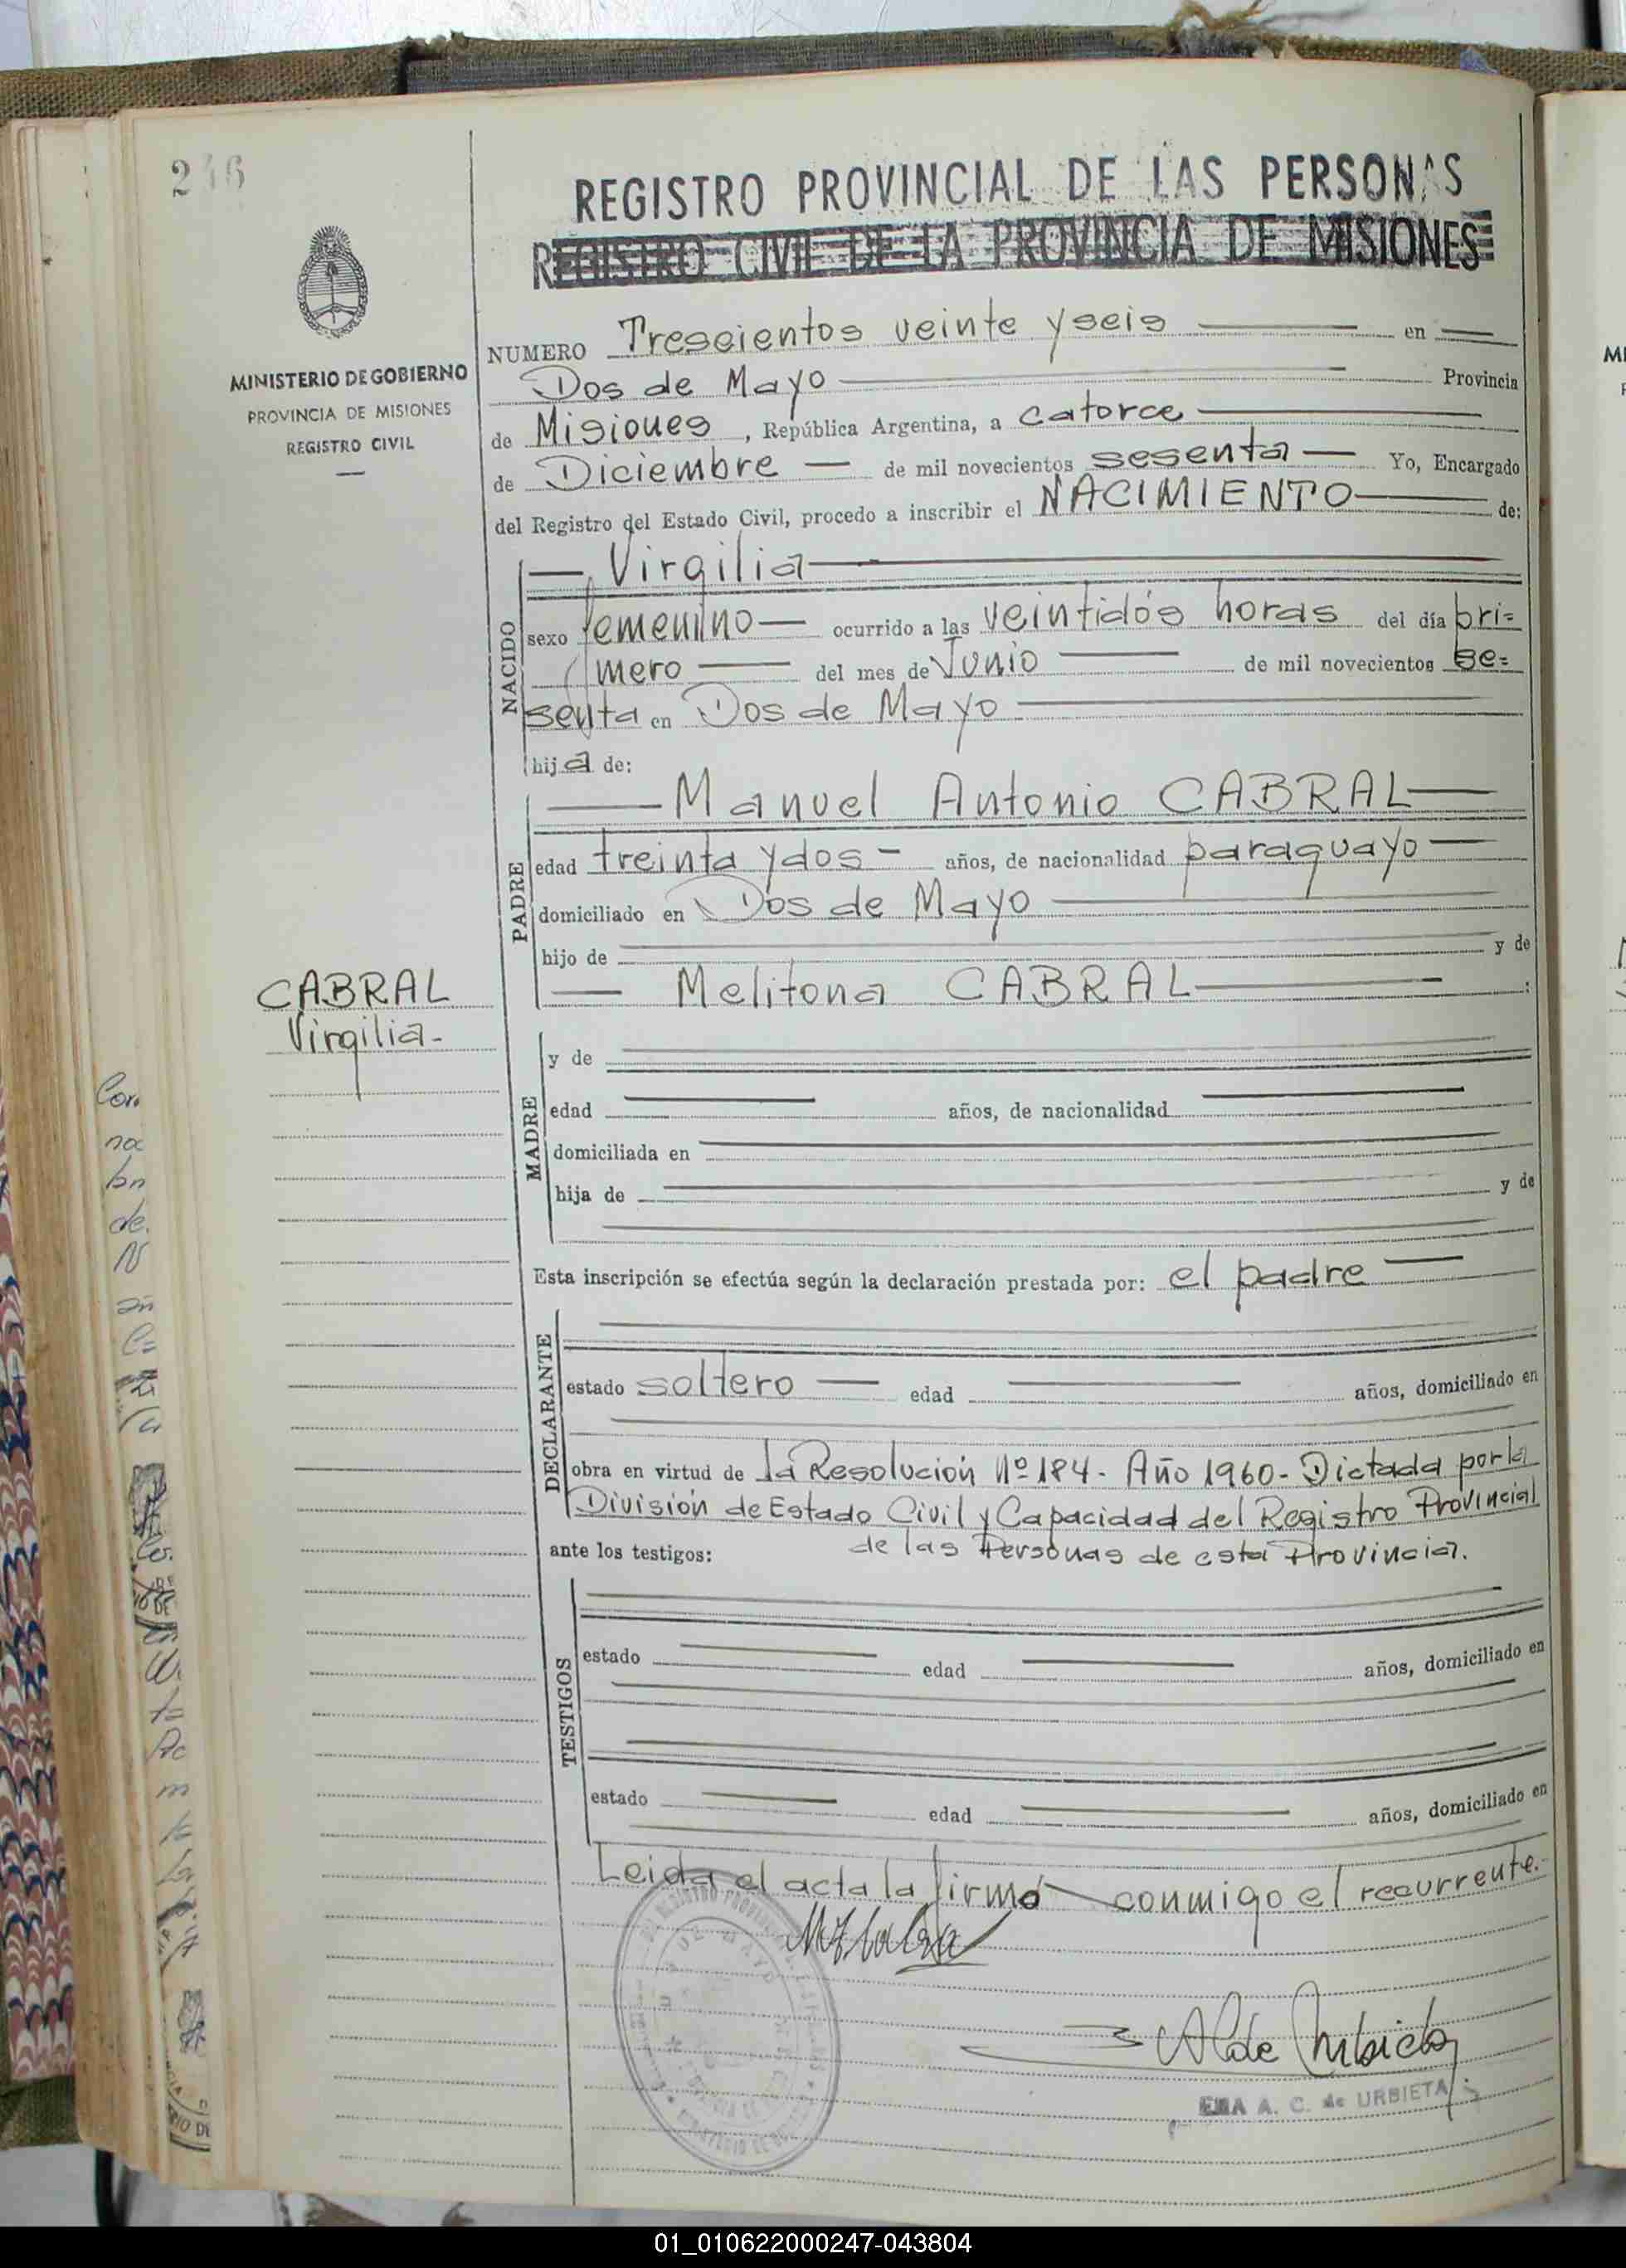 246
REGISTRO PROVINCIAL DE LAS PERSONAS
REGISTRO CIVIL DE LA PROVINCIA DE MISIONES
MINISTERIO DE GOBIERNO
PROVINCIA DE MISIONES
REGISTRO CIVIL
NUMERO Trescientos veinte y seis en
Dos de Mayo Provincia
de Misiones, República Argentina, a catorce
de Diciembre de mil novecientos sesenta Yo, Encargado
del Registro del Estado Civil, procedo a inscribir el NACIMIENTO de:
NACIDO
Virgilia
sexo femenino ocurrido a las veintidós horas del día pri=
mero del mes de Junio de mil novecientos se=
senta en Dos de Mayo
hija de:
PADRE
Manuel Antonio CABRAL
edad treinta y dos años, de nacionalidad paraguayo
domiciliado en Dos de Mayo
hijo de y de
Melitona CABRAL :
CABRAL
Virgilia-
MADRE
y de
edad años, de nacionalidad
domiciliada en
hija de y de
Esta inscripción se efectúa según la declaración prestada por: el padre
DECLARANTE
estado soltero edad años, domiciliado en
obra en virtud de la Resolución Nº 184- Año 1960- Dictada por la
División de Estado Civil y Capacidad del Registro Provincial
de las Personas de esta Provincia.
ante los testigos:
TESTIGOS
estado edad años, domiciliado en
estado edad años, domiciliado en
Leida el acta la firmó conmigo el recurrente.
EMA A. C. de URBIETA
01_010622000247-043804